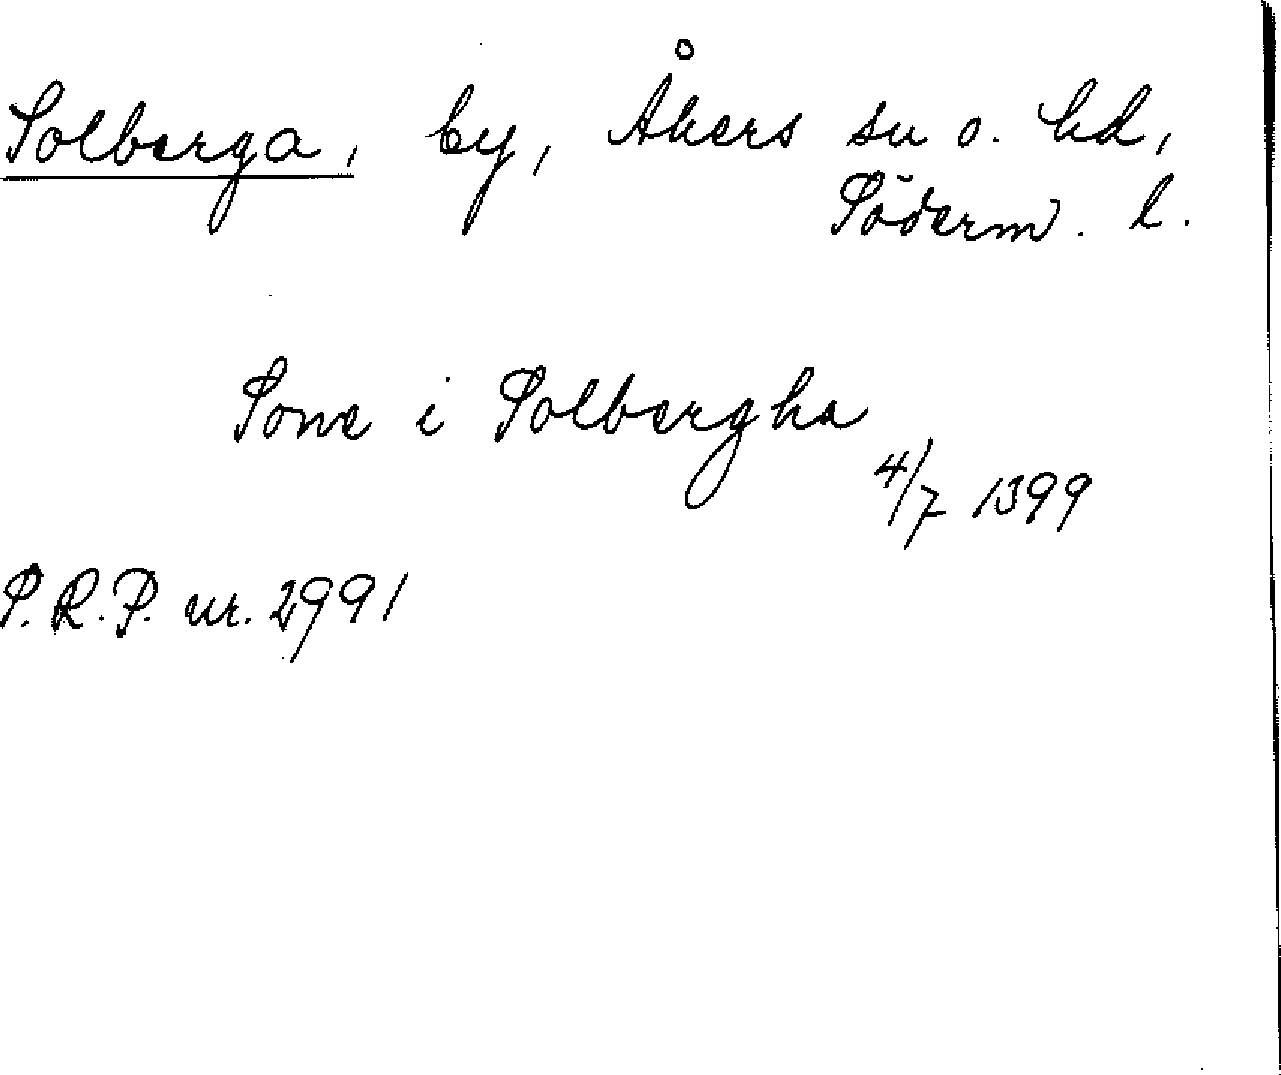 Solberga, by, Åkers sn o. hd,
Söderm. l.
Sone i Solbergha
4/7 1399
P.R.P. nr. 2991